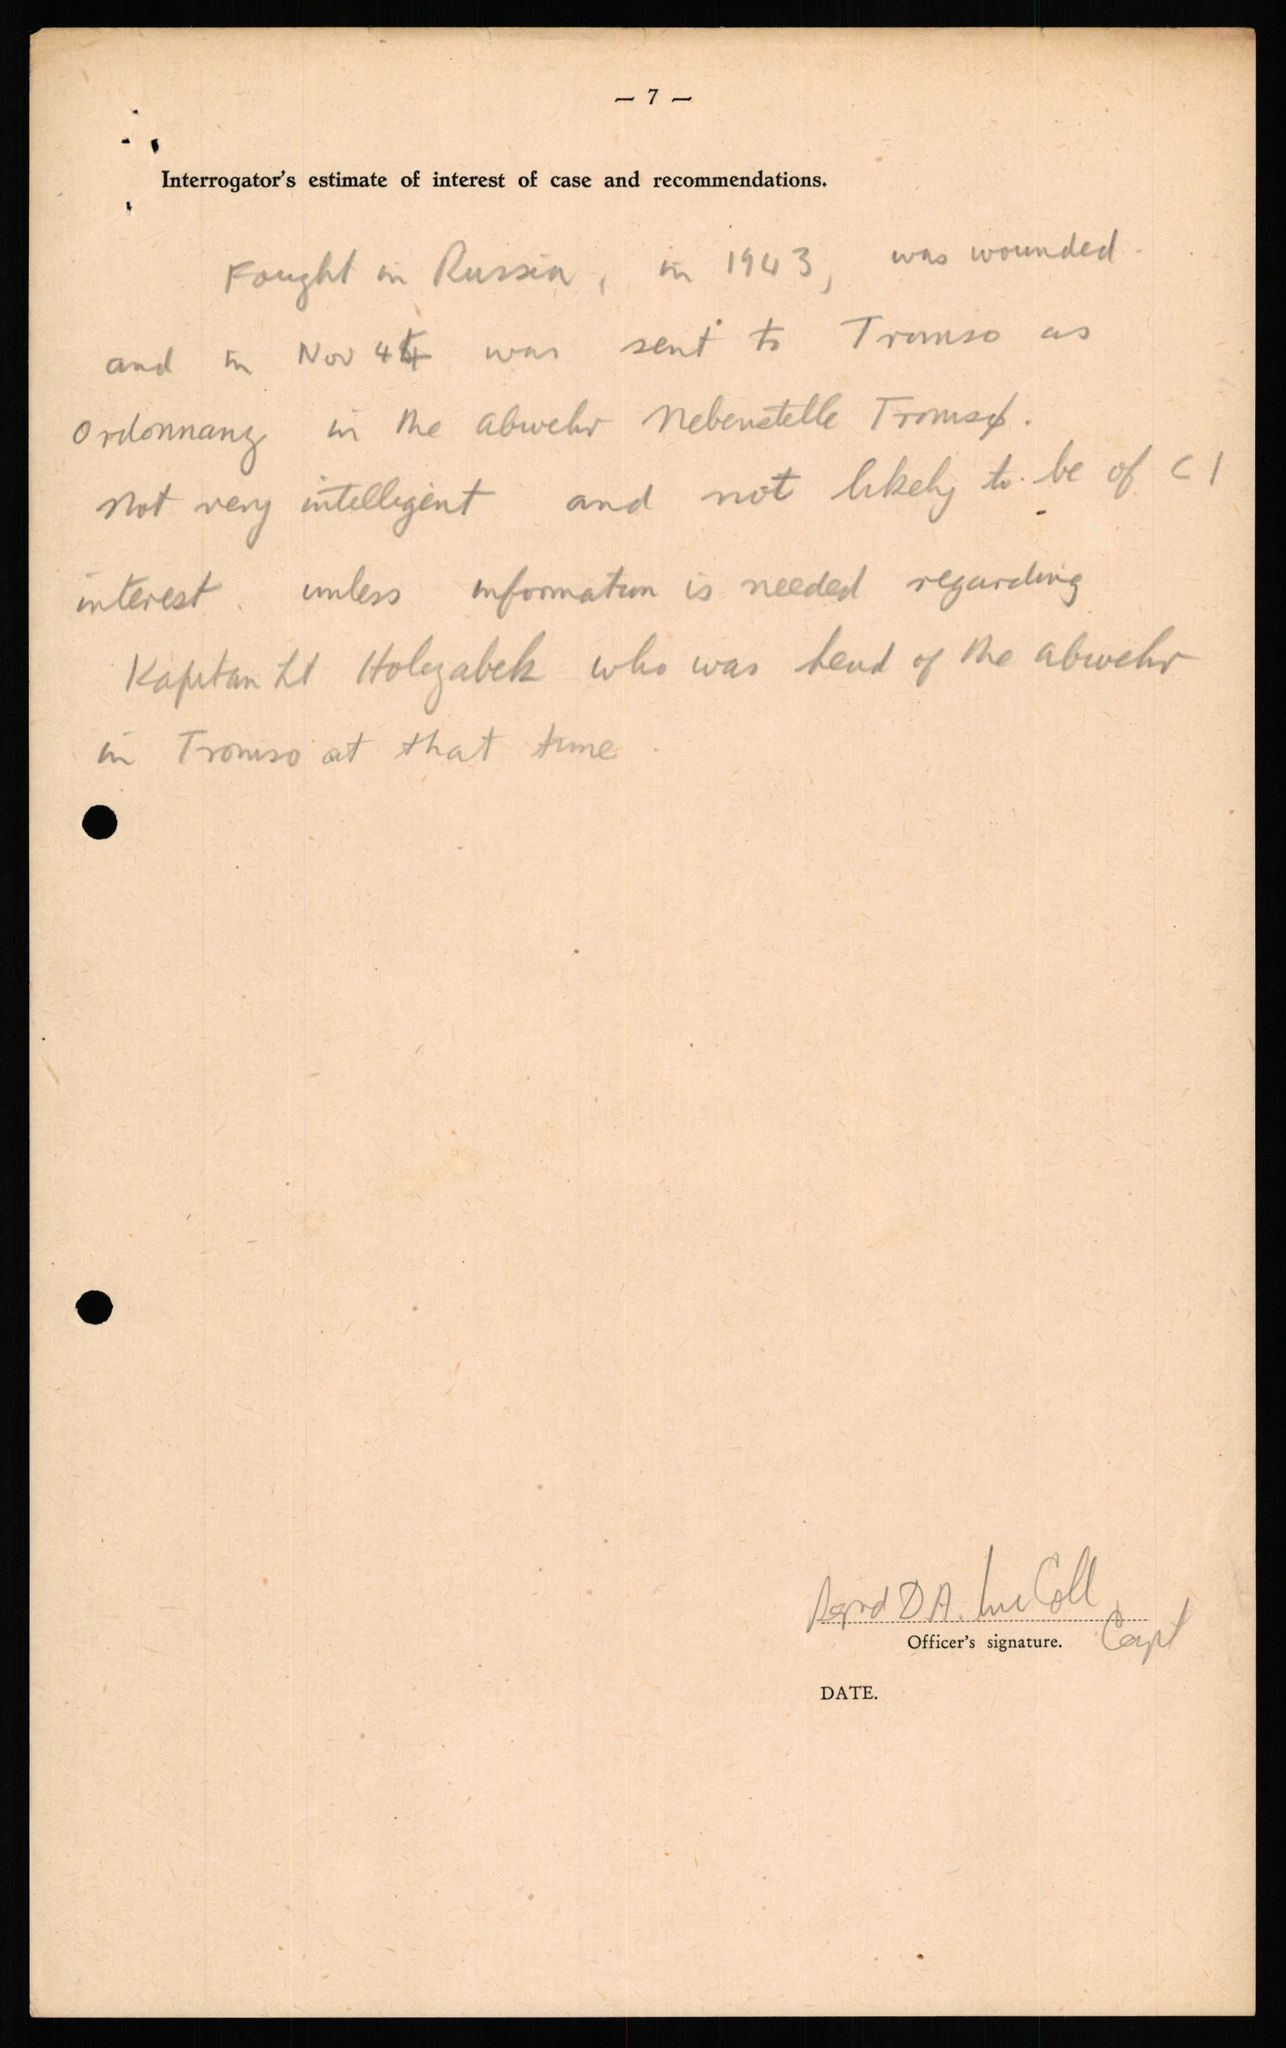 — 7 —
Interrogator's estimate of interest of case and recommendations.
Fought in Russia, in 1943, was wounded
and in Nov 44 was sent to Tromso as
Ordonnanz in the abwehr Nebenstelle Tromsø.
Not very intelligent and not likely to be of CI
interest unless information is needed regarding
Kapitan Lt Holezabek who was head of the abwehr
in Tromso at that time.
D A. McColl
Officer's signature. Capt
DATE.